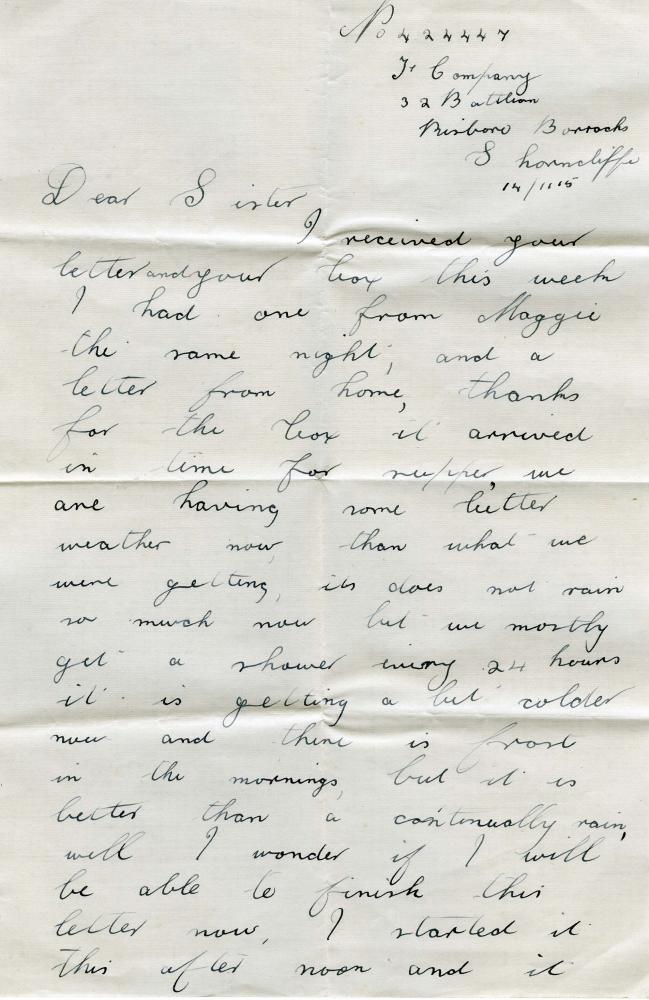 No 424447
F Company
32 Battlion
Risboro Barracks
Shorncliffe
14/11 15
Dear Sister
I received your
letter and your box this week
I had one from Maggie
the same night, and a
letter from home, thanks
for the box it arrived
in time for supper, we
are having some better
weather now, than what we
were getting, its does not rain
so much now but we mostly
get a shower every 24 hours
it is getting a bit colder
now and there is frost
in the mornings, but it is
better than a continually rain,
well I wonder if I will
be able to finish this
letter now, I started it
this after noon and it